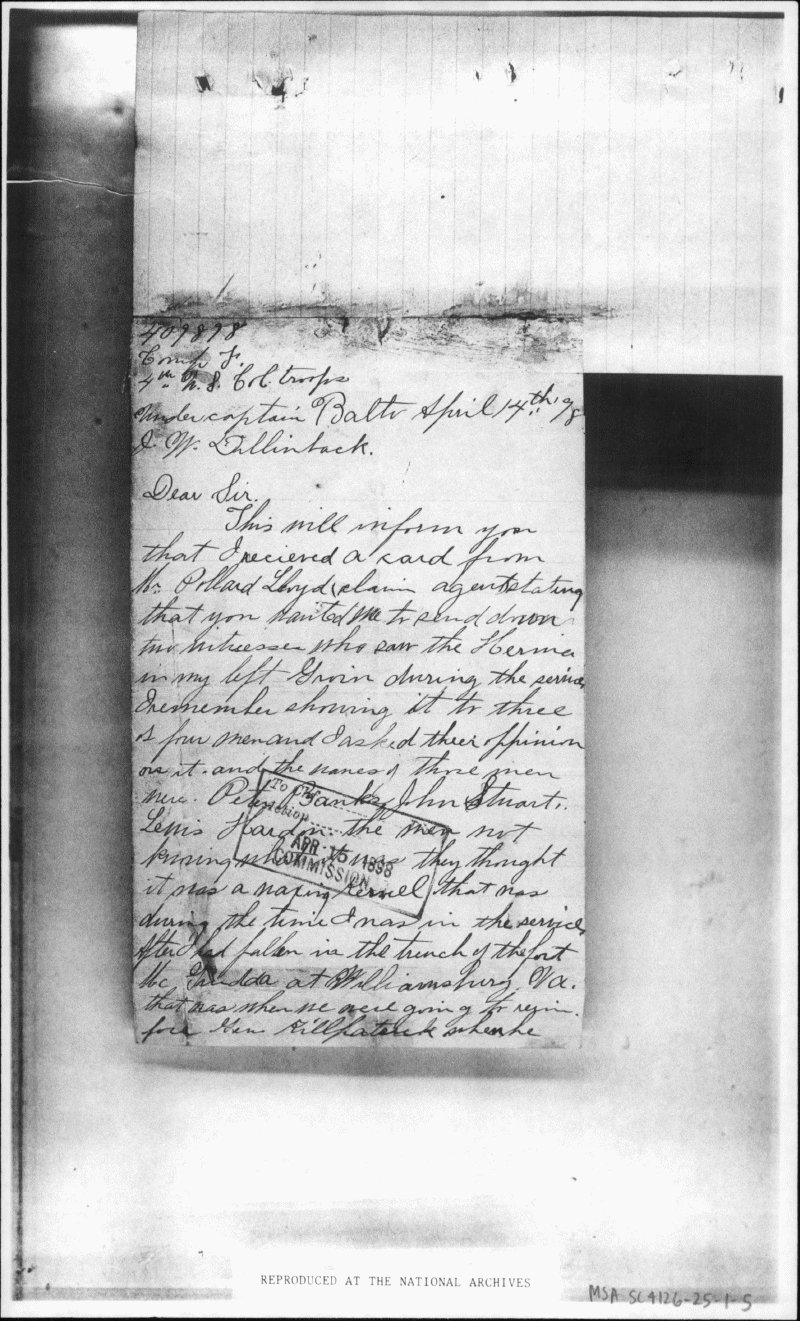 409898
Comp F.
4th U. S. Col. troops
Under captain Balto April 14th 98
J. W. Dillinback.
Dear Sir.
This will inform you
that I recieved a card from
Mr. Pollard Lloyd, claim agent stating
that you wanted me to send down
two witnesses who saw the Hernia
in my left Groin during the service
I remember showing it to three
or four men and I asked their oppinion
on it. and the names of those men
were. Peter Banks, John Stuart.
Lewis Hardon. the men not
knowing what it was they thought
it was a waxing kernell that was
during the time I was in the service
After I had fallen in the trench of the fort
Mc at Williamsburg, Va.
that was when we were going to rejin-
force Gen Killpatrick when he
To the
APR 15 1898
COMMISSION
REPRODUCED AT THE NATIONAL ARCHIVES
MSA SC4126-25-1-5